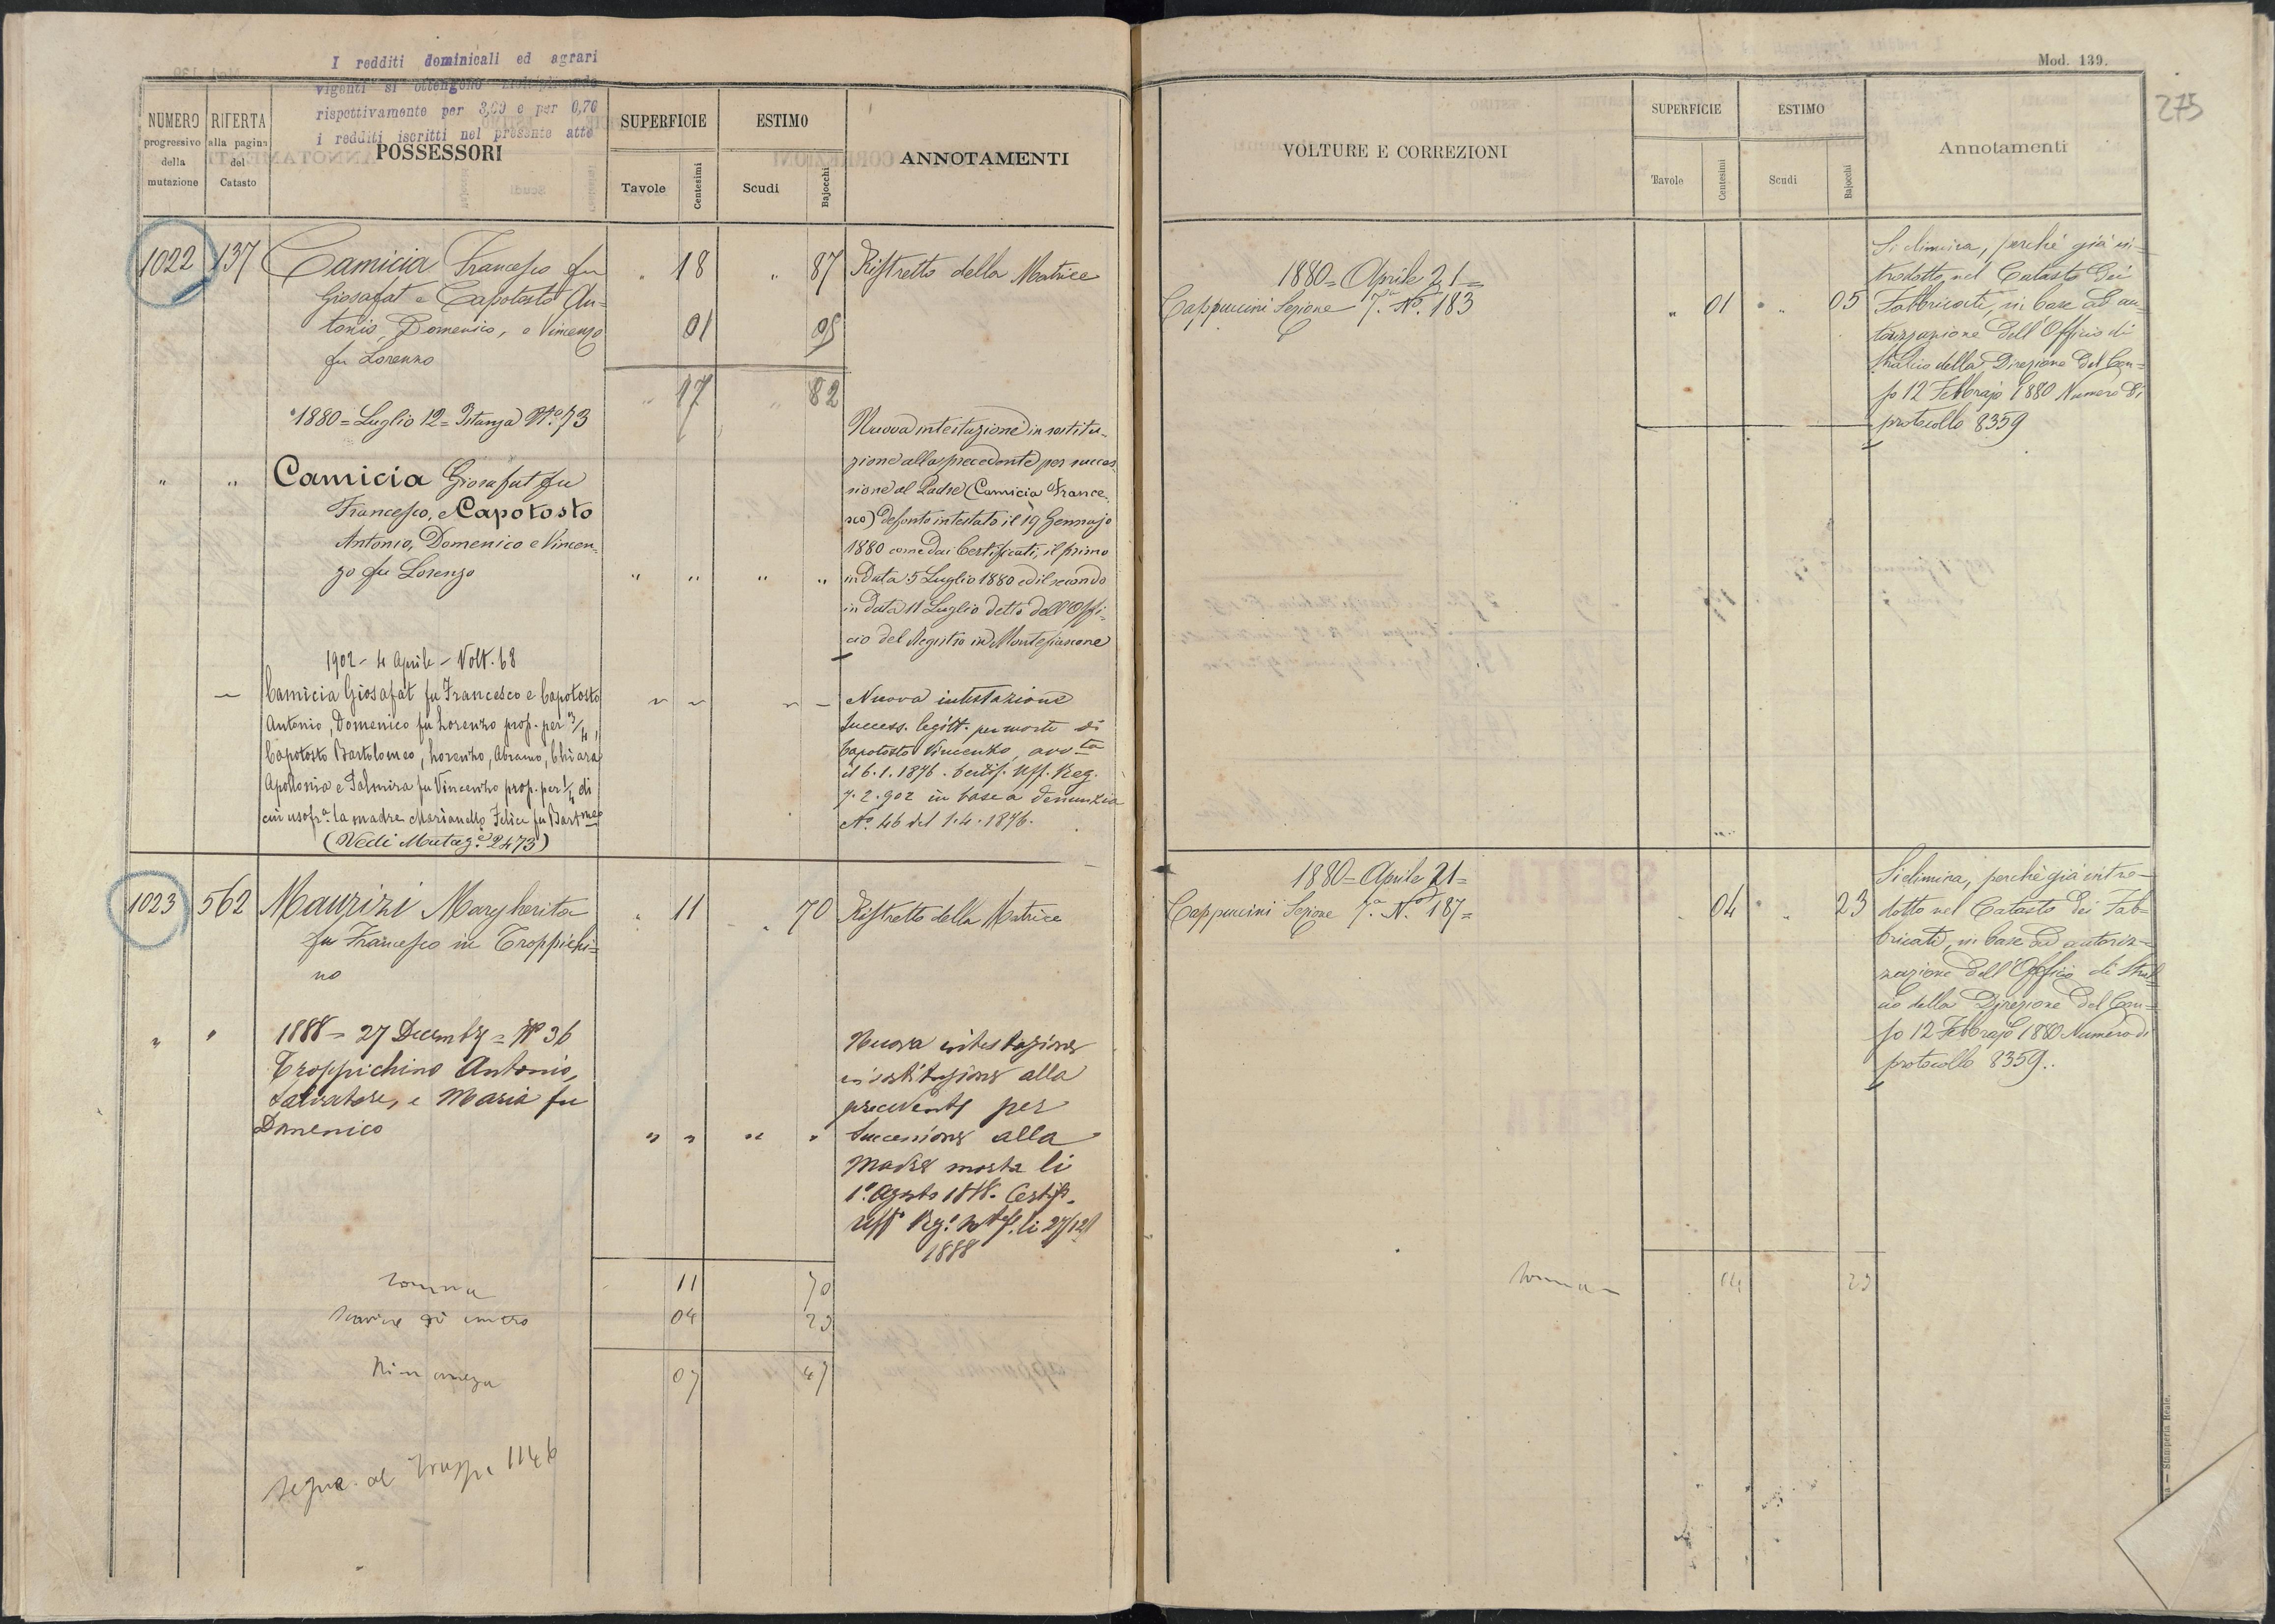 I redditi dominicali ed agrari
vigenti si ottengono moltiplicando
rispettivamente per 3,60 e per 0,70
i redditi iscritti nel presente atto
NUMERO
progressivo
della
mutazione
RIFERTA
alla pagina
del
Catasto
POSSESSORI
SUPERFICIE
Tavole
Centesimi
ESTIMO
Scudi
Bajocchi
ANNOTAMENTI
1022 137 Camicia Francesco fu " 18 " 87 Ristretto della Matrice
Giosafat e Capotosto An=
tonio, Domenico, e Vincenzo 01 05
fu Lorenzo
" 17 " 82
1880 = Luglio 12 = Istanza N.º 73
" " Camicia Giosafat fu
Francesco, e Capotosto
Antonio, Domenico e Vincen=
zo fu Lorenzo " " " "
Nuova intestazione in sostitu=
zione alla precedente per succes
sione al Padre (Camicia France
sco) defonto intestato il 19 Gennajo
1880 come dai Certificati, il primo
in data 5 Luglio 1880 ed il secondo
in data 11 Luglio detto dell'Offi=
cio del Registro in Montefiascone
1902 - 4 Aprile - Volt. 68
Camicia Giosafat fu Francesco e Capotosto
Antonio, Domenico fu Lorenzo prop. per 3/4,
Capotosto Bartolomeo, Lorenzo, Abramo, Chiara
Apollonia e Palmira fu Vincenzo prop. per 1/4 di
cui usofr.a la madre Marianello Felice fu Bartmeo
(Vedi Mutaz.e 2473)
Nuova intestazione
Success. legitt. per morte di
Capotosto Vincenzo, avv.ta
il 6.1.1876. Certif. Uff. Reg.
7.2.902 in base a denunzia
N.º 46 del 1.4.1876.
1023 562 Maurizi Margherita " 11 " 70 Ristretto della Matrice
fu Francesco in Troppichi=
no
" " 1888 = 27 Decembre = Nº 36
Troppichino Antonio,
Salvatore, e Maria fu
Domenico " " " "
Nuova intestazione
in sostituzione alla
precedente per
successione alla
madre morta li
1º Agosto 1888. Certif.
Uff.º Reg.º li 27/12/
1888
Somma 11 70
04 23
Rimanenza 07 47
Segue al 1146
Mod. 139.
275
VOLTURE E CORREZIONI
SUPERFICIE
Tavole
Centesimi
ESTIMO
Scudi
Bajocchi
Annotamenti
1880 = Aprile 21 =
Cappuccini Sezione 7.a N.º 183 " 01 " 05
Si elimina, perchè già in=
trodotto nel Catasto dei
Fabbricati, in base ad au=
torizzazione dell'Officio di
Stralcio della Direzione del Cen=
so 12 Febbrajo 1880 Numero di
protocollo 8359
1880 = Aprile 21 =
Cappuccini Sezione 7.a N.º 187 = 04 " 23
Si elimina, perchè già intro=
dotto nel Catasto dei Fab=
bricati, in base ad autoriz=
zazione dell'Officio di Stral
cio della Direzione del Cen=
so 12 Febbrajo 1880 Numero di
protocollo 8359.
Somma 04 23
Stamperia Reale.